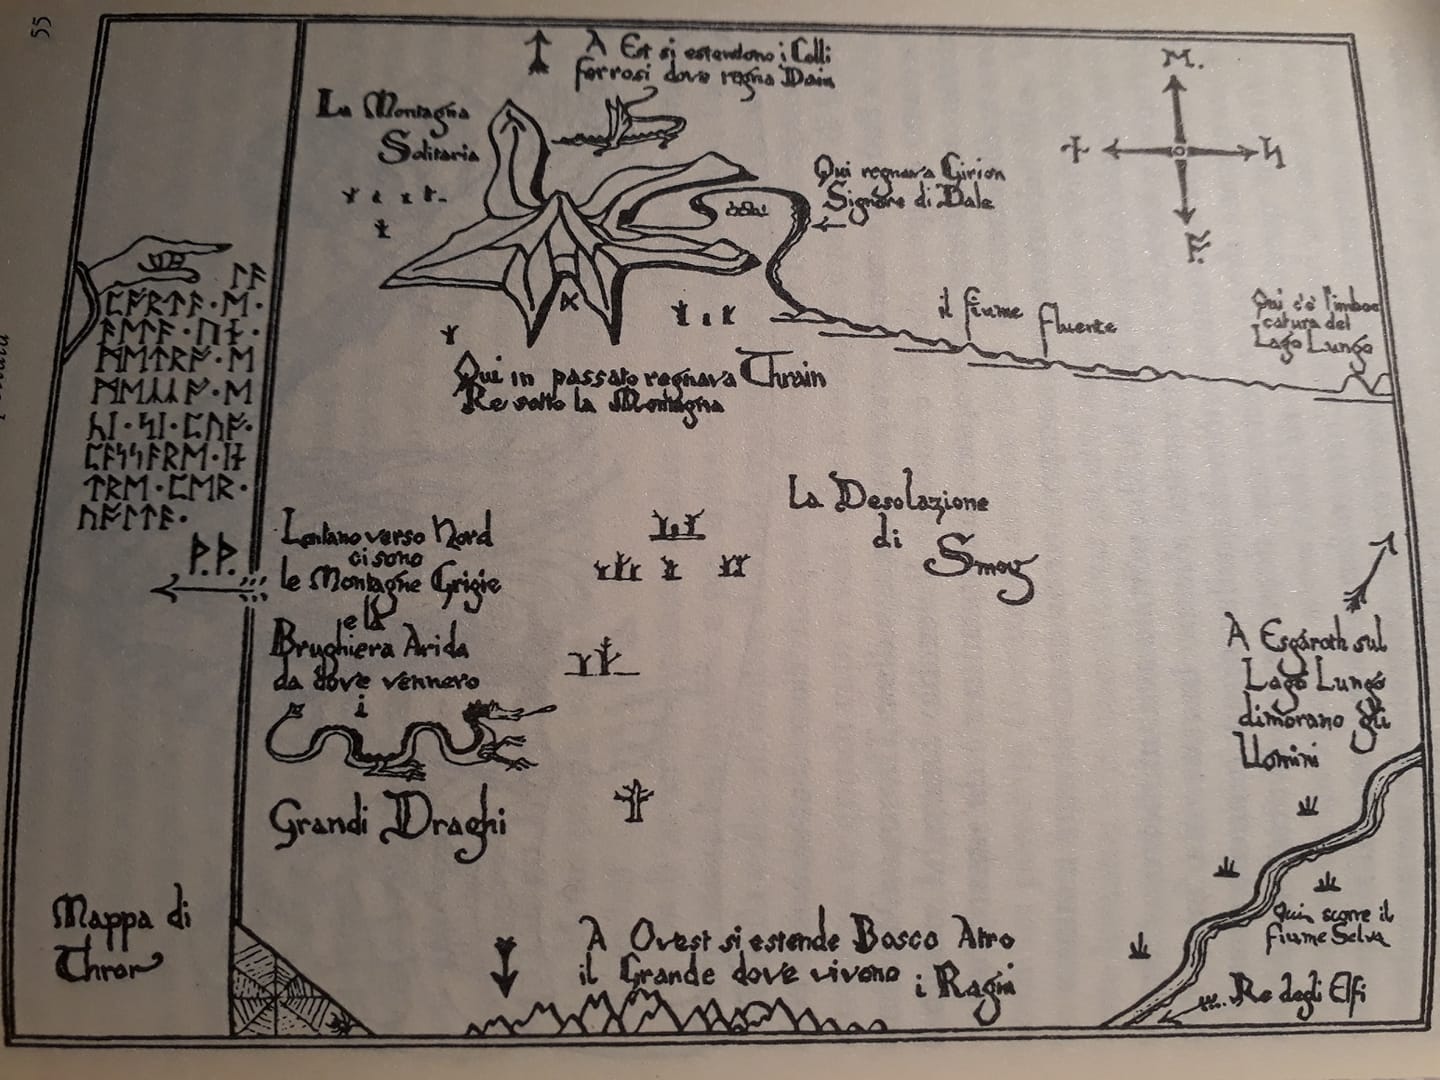 55
A Est si estendono i Colli
ferrosi dove regna Dain
La Montagna
Solitaria
Qui regnava Girion
Signore di Dale
ᛚᚪ
ᛈᚩᚱᛏᚪ᛫ᛖ᛫
ᚪᛚᛏᚪ᛫ᚢᚾ᛫
ᛗᛖᛏᚱᚩ᛫ᛖ
il fiume fluente
Qui c'è l'imboc
catura del
Lago Lungo
Qui in passato regnava Thrain
Re sotto la Montagna
ᛈᚪᛋᛋᚪᚱᛖ᛫ᛁᚾ
ᛏᚱᛖ᛫ᛈᛖᚱ᛫
ᚢᚩᛚᛏᚪ᛫
ᚦ.ᚦ.
La Desolazione
di
Smog
Lontano verso Nord
ci sono
le Montagne Grigie
e la
Brughiera Arida
da dove vennero
i
Grandi Draghi
A Esgaroth sul
Lago Lungo
dimorano gli
Uomini
Mappa di
Thror
A Ovest si estende Bosco Atro
il Grande dove vivono i Ragni
Qui scorre il
fiume Selva
Re degli Elfi